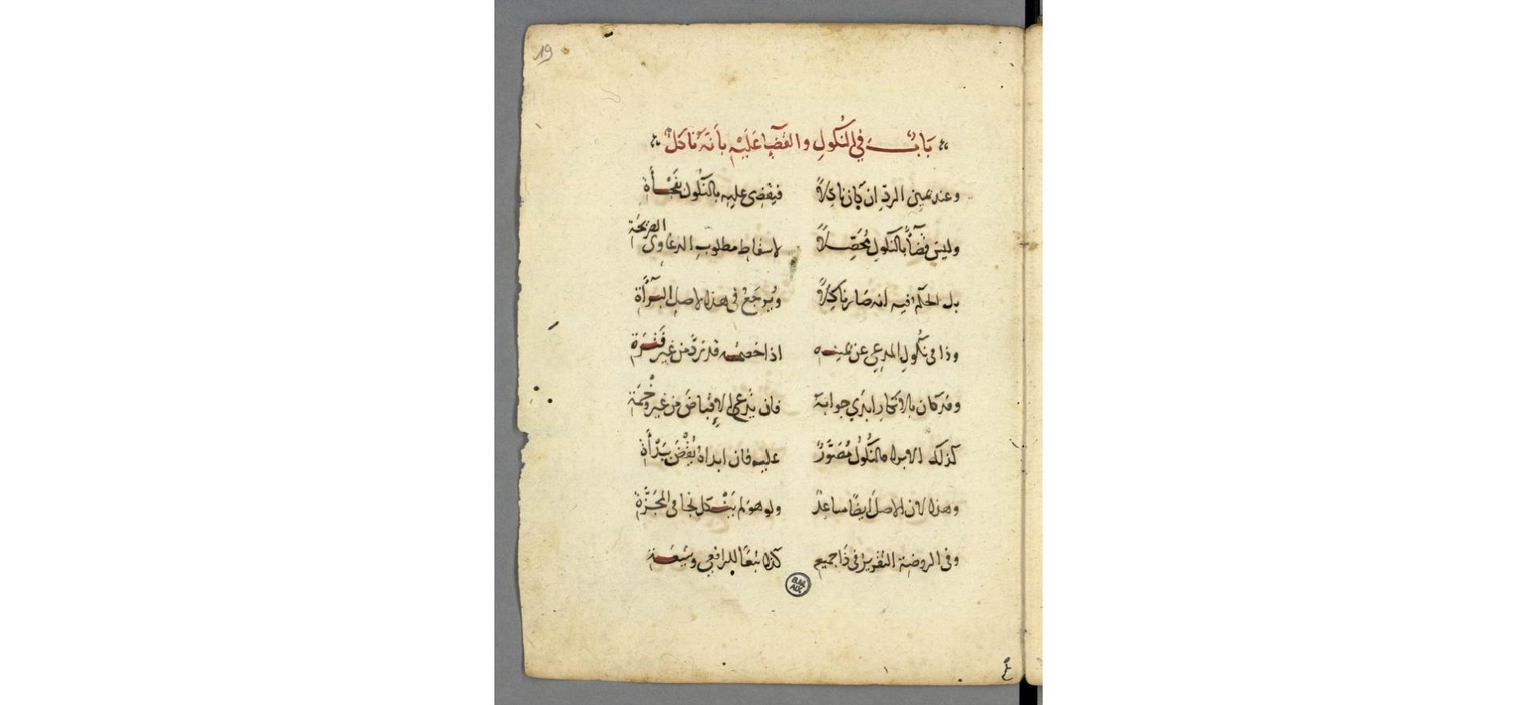 19
بَابٌ في النُّكولِ والقَضَآ عَلَيْهِ بأَنَّهُ نَاكِلٌ
وعند يمين الردّ ان كان ناكِلاً فيقضى عليه بالنّكول بفَجْأَة
وليسَ قضآً بالنكولِ مُحَصِّلاً لاسقاط مطلوب الدعاوى الصريحَة
بل الحكم فيه انه صار ناكِلاً ويُرجَعُ فى هذا لاصل البَرآَة
وذا فى نكُولِ المدعي عن يمينه اذا خصمه قد ردّ من غير فَتْرَة
وقد كان بالانكار ابدي جوابه فان يدعى الاقباضَ من غير
كذلك الابرا فالنُّكُولُ مُصَوَّرٌ عليه فان ابداهُ
وهذا لان الاصل ايضًا ساعدٌ ولو هو لم يَنْكل
وفى الروضة التقرير فى ذَا جميعه كذا تبعًا للرافعي